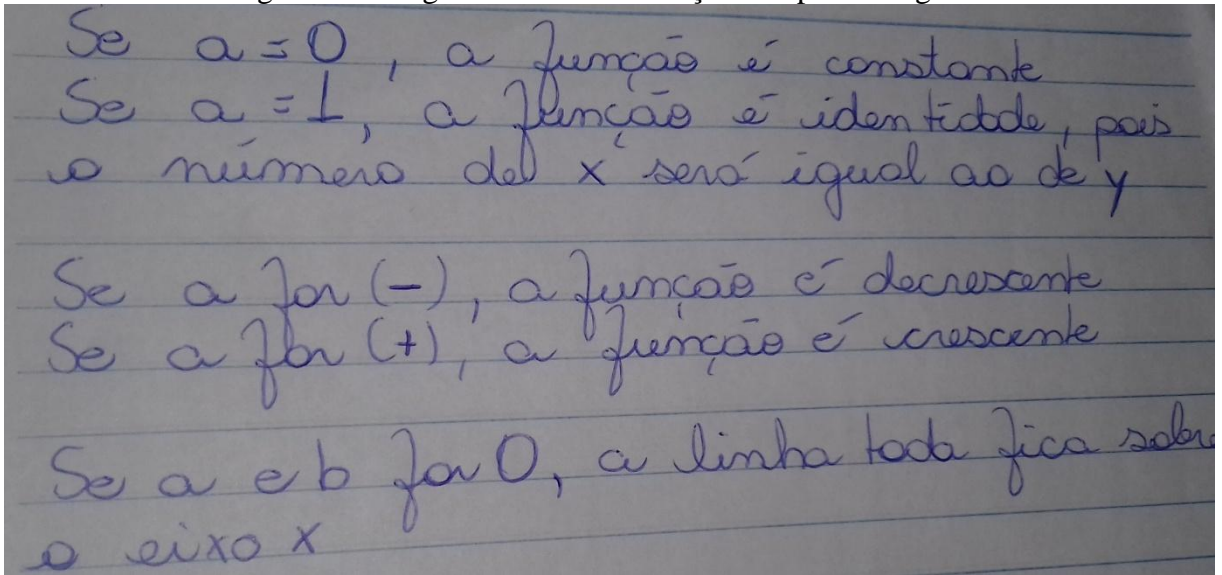 Se a = 0, a função é constante
Se a = 1, a função é identidade, pois
o número del x será igual ao de y
Se a for (-), a função é decrescente
Se a for (+), a função é crescente
Se a e b for 0, a linha toda fica sobre
o eixo x